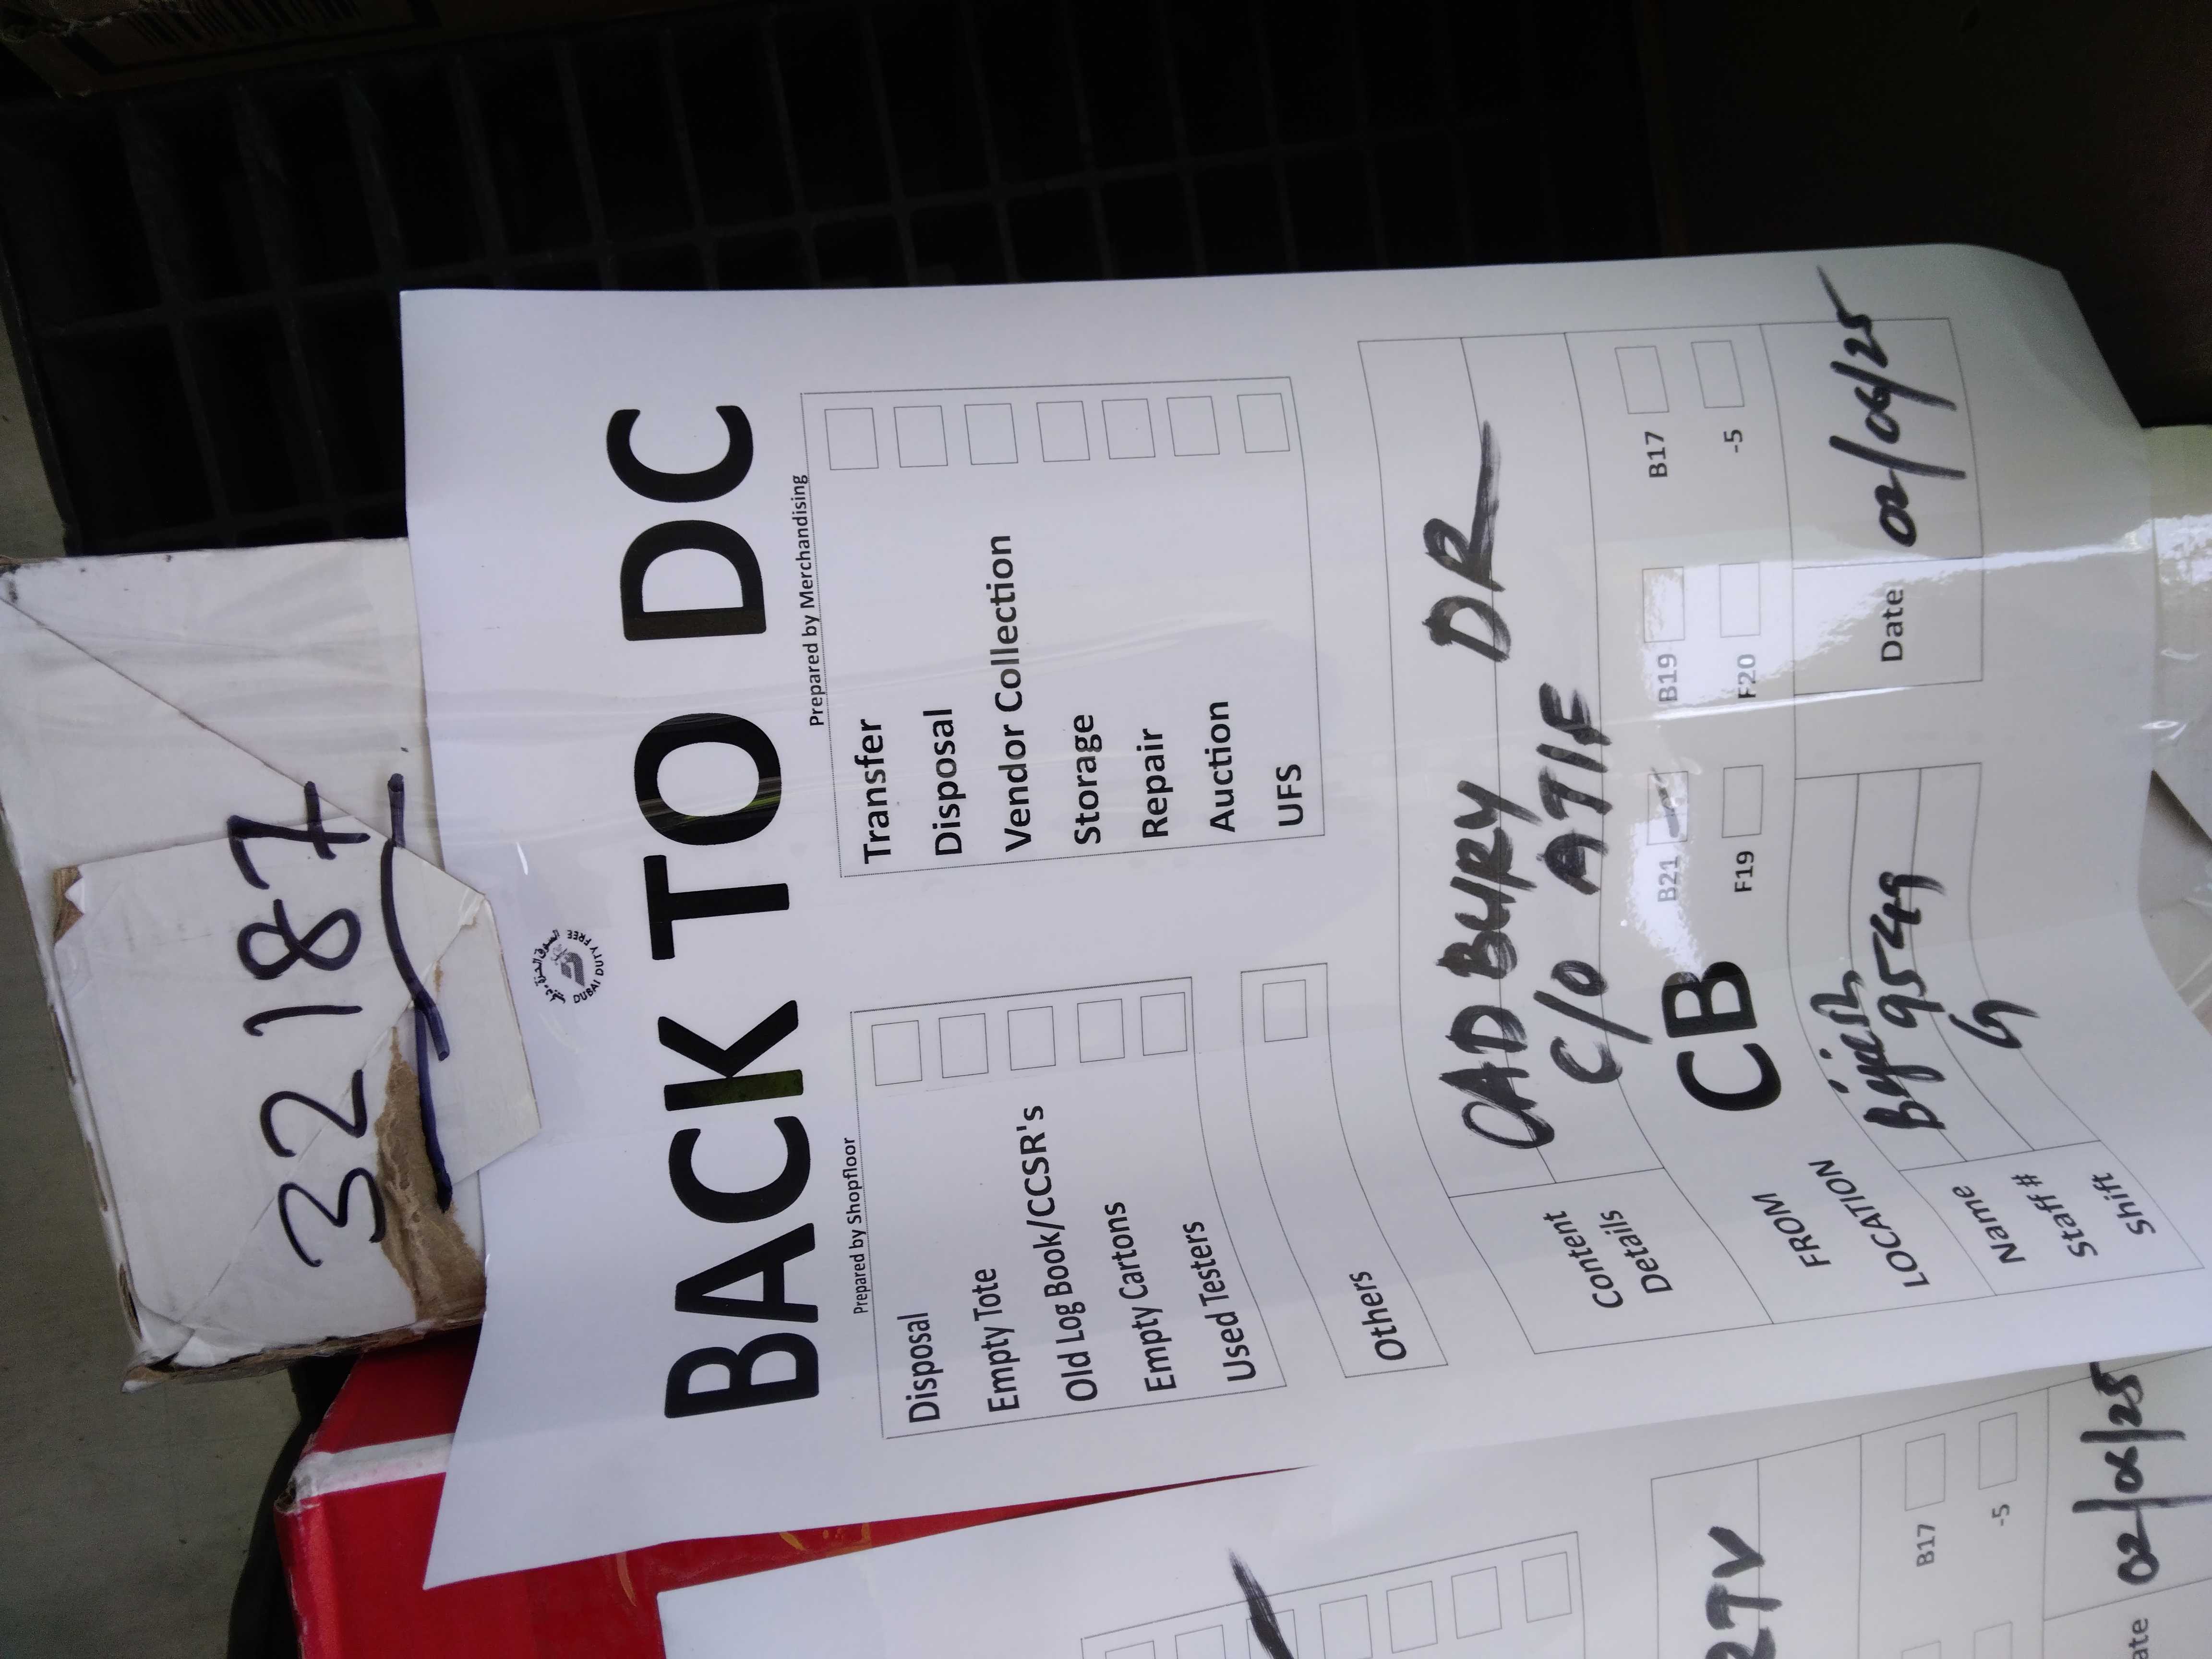 32187
السوق الحرة دبي
DUBAI DUTY FREE
BACK TO DC
Prepared by Shopfloor
Disposal
Empty Tote
Old Log Book/CCSR's
Empty Cartons
Used Testers
Others
Prepared by Merchandising
Transfer
Disposal
Vendor Collection
Storage
Repair
Auction
UFS
Content Details
CADBURY DR
C/O ATIF
FROM LOCATION
CB
B21 B19 B17
F19 F20 -5
Name Bijish
Staff # 9549
Shift G
Date 02/06/25
RTV
B17
-5
ate 02/06/25